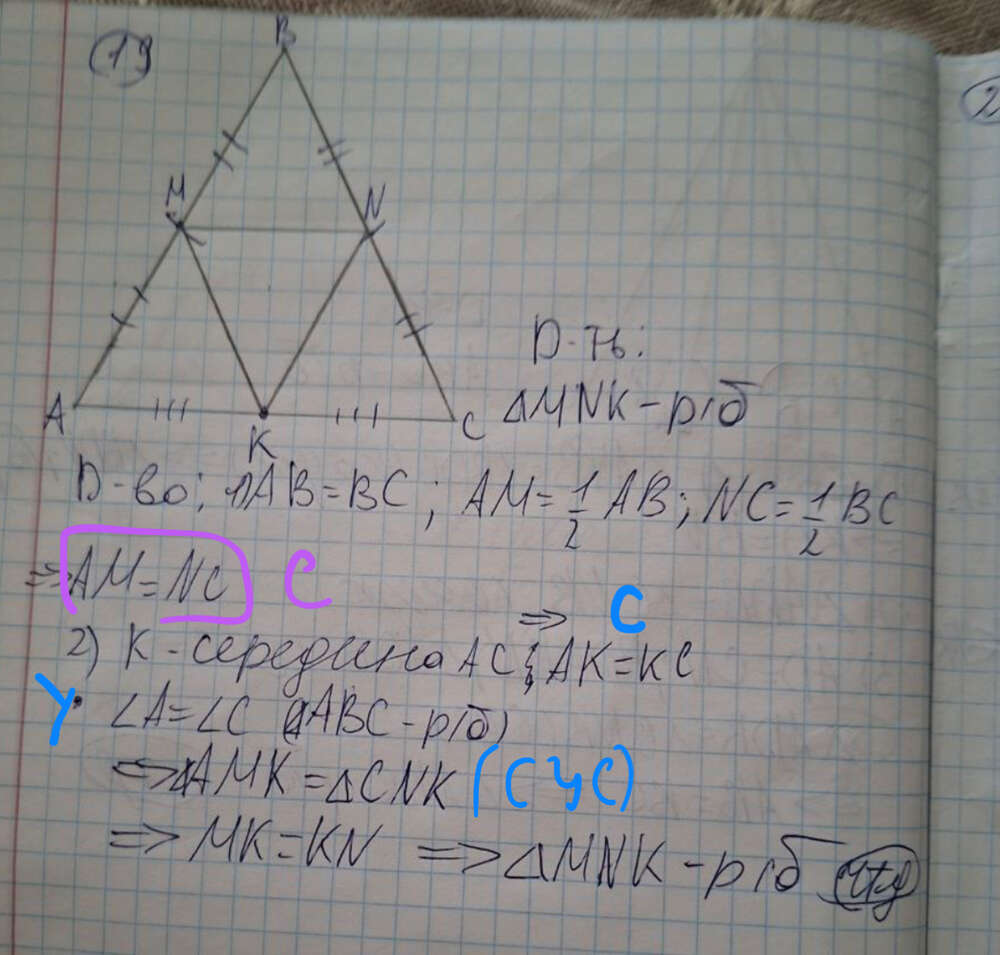 19
B
M N
A K C
D-ть:
ΔMNK - р/б
D-во: 1) AB = BC; AM = 1/2 AB; NC = 1/2 BC
=> AM = NC C
2) K - середина AC => AK = KC C
У ∠A = ∠C (ΔABC - р/б)
=> ΔAMK = ΔCNK (СУС)
=> MK = KN => ΔMNK - р/б чтд
2